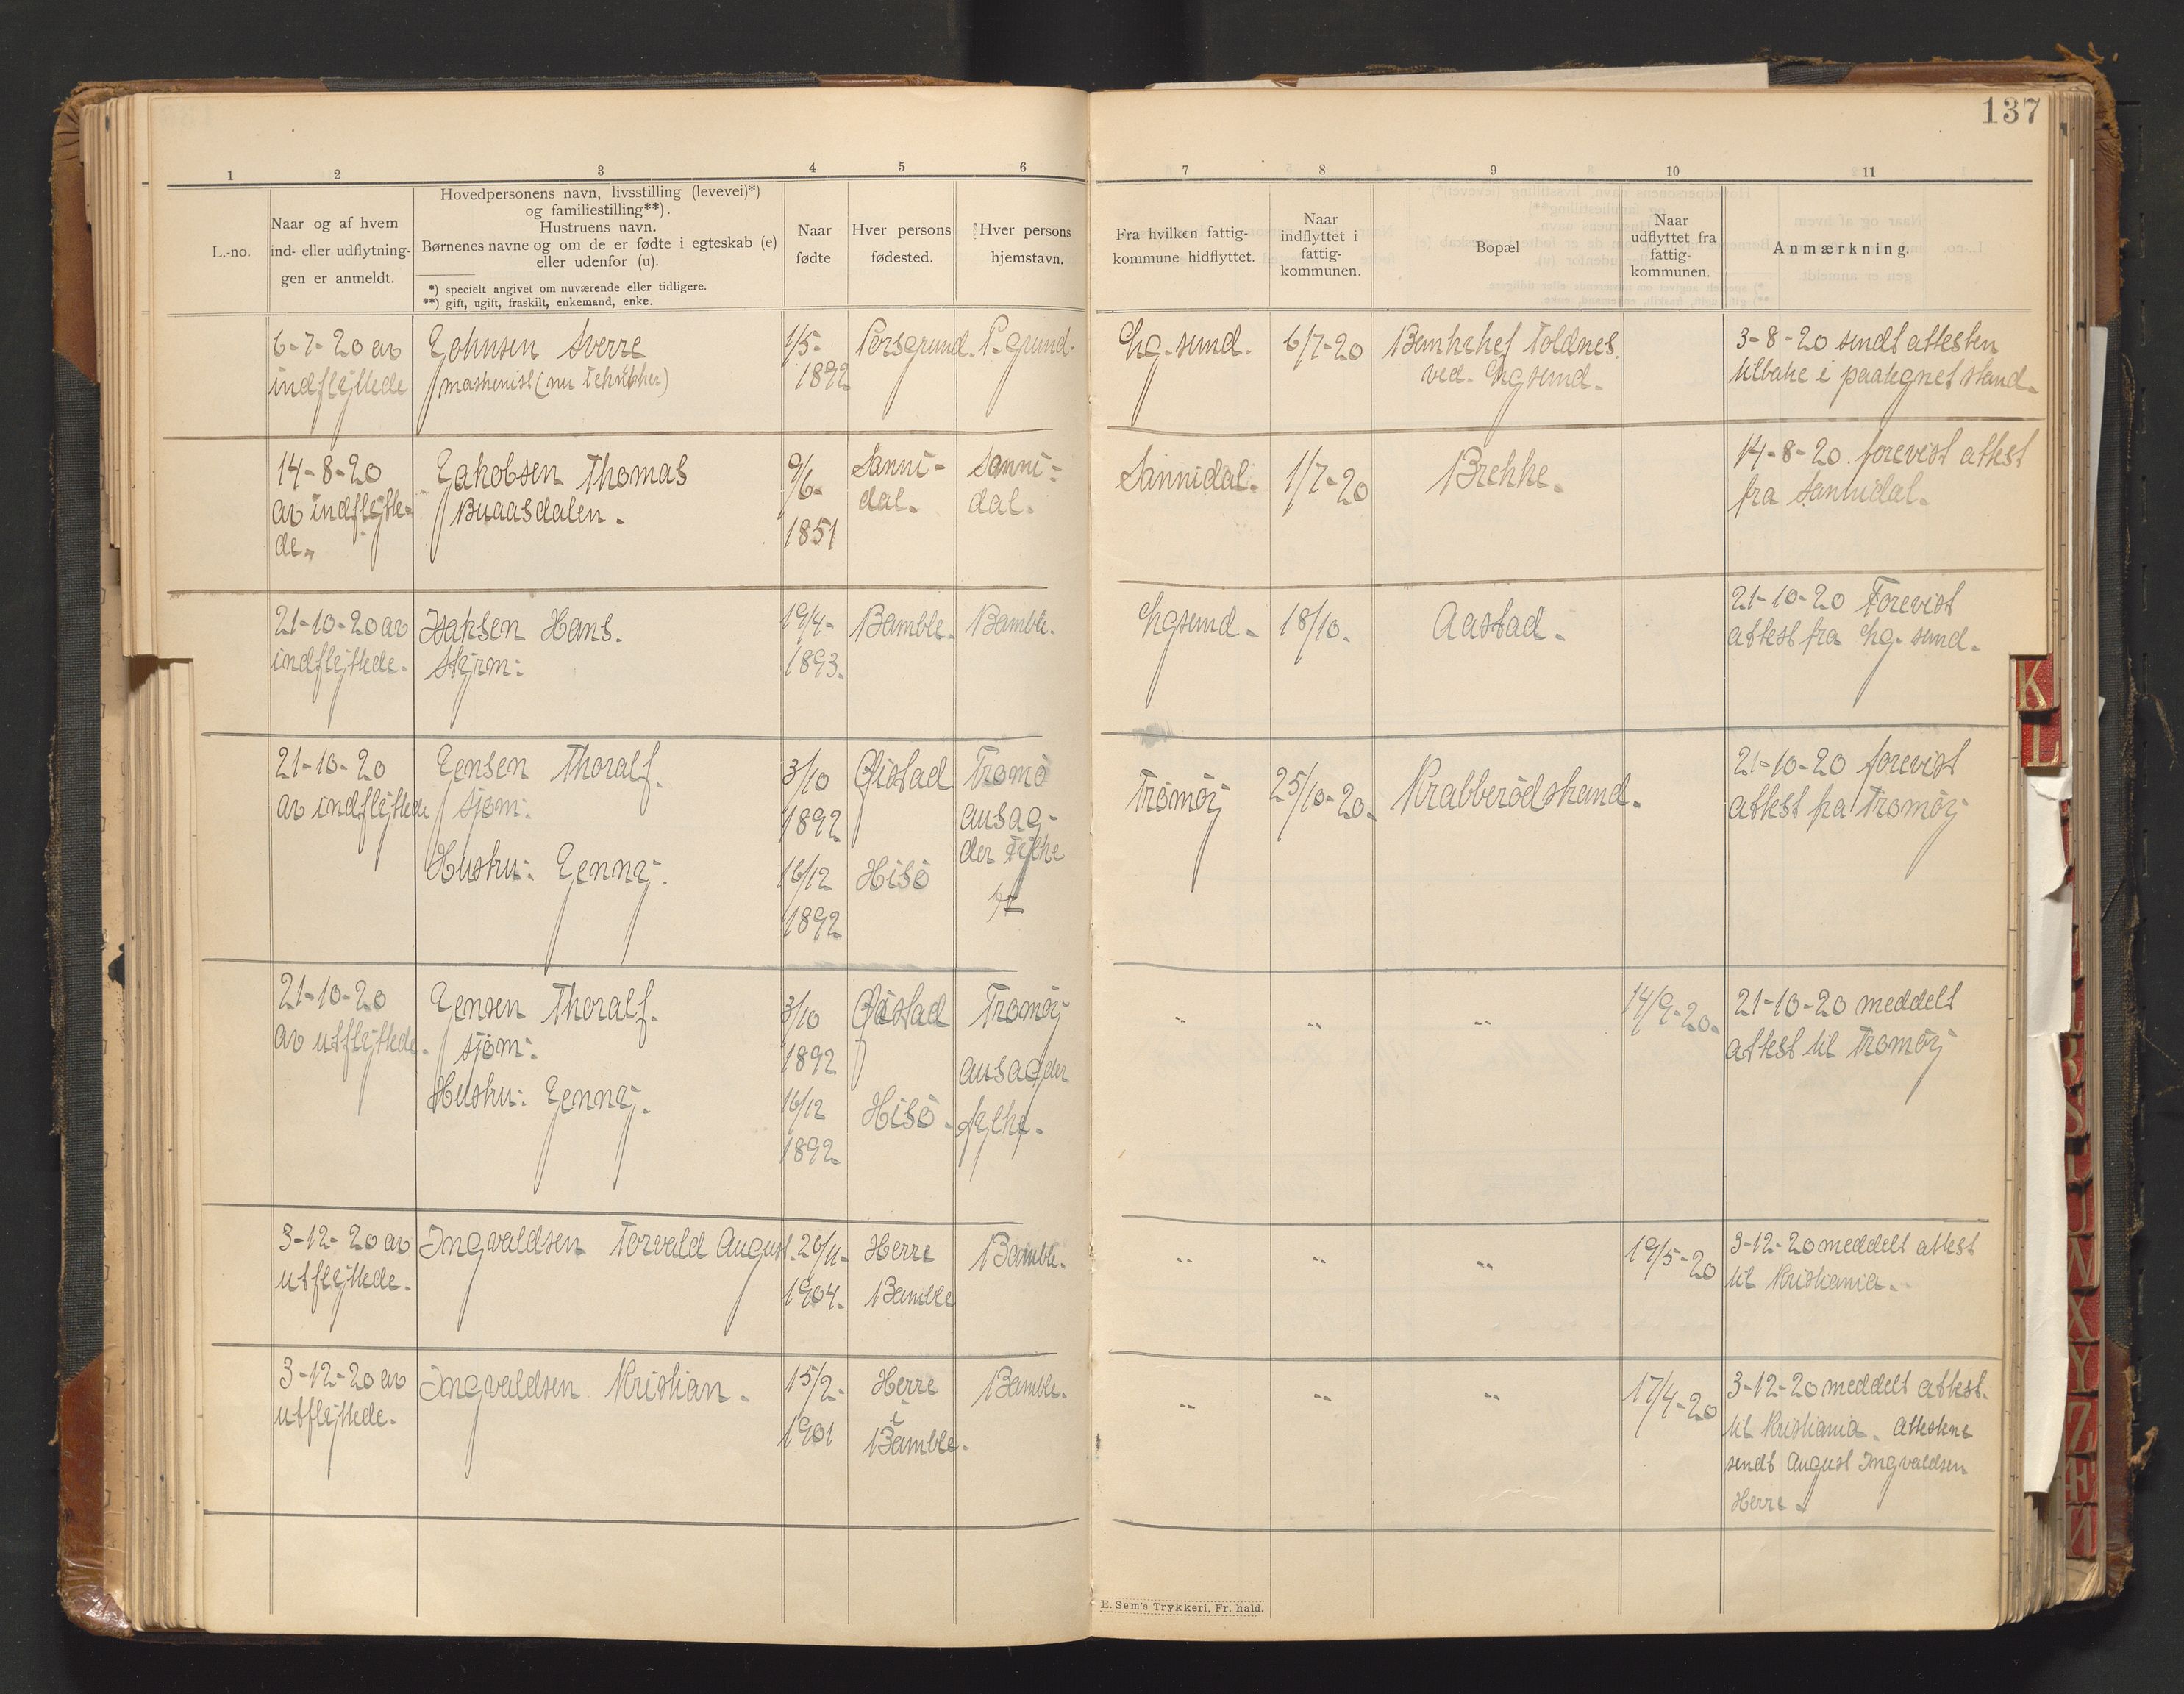 137
1 2 3 4 5 6 7 8 9 10 11
L.-no.
Naar og af hvem
ind- eller udflytning-
gen er anmeldt.
Hovedpersonens navn, livsstilling (levevei)*)
og familiestilling**).
Hustruens navn.
Børnenes navne og om de er fødte i egteskab (e)
eller udenfor (u).
*) specielt angivet om nuværende eller tidligere.
**) gift, ugift, fraskilt, enkemand, enke.
Naar
fødte
Hver persons
fødested.
Hver persons
hjemstavn.
Fra hvilken fattig-
kommune hidflyttet.
Naar
indflyttet i
fattig-
kommunen.
Bopæl
Naar
udflyttet fra
fattig-
kommunen.
Anmærkning.
6-7-20 av
indflyttede
Johnsen Sverre
maskinist (nu tekniker)
1/5-
1892
Porsgrund.
P.grund.
Lg.sund.
6/7-20
Toldnes.
ved. Lgsund.
3-8-20 sendt attesten
tilbake i paategnet stand.
14-8-20
av indflytte-
de.
Jakobsen Thomas
Buaasdalen.
9/6-
1851
Sanni-
dal.
Sanni-
dal.
Sannidal.
1/7-20
Brekke.
14-8-20. forevist attest
fra Sannidal.
21-10-20 av
indflyttede.
Isaksen Hans.
Styrm:
19/4-
1893.
Bamble.
Bamble.
Lgsund.
18/10.
Aastad.
21-10-20 Forevist
attest fra Lg.sund.
21-10-20
av indflyttede
Jensen Thoralf.
sjøm:
Hustru: Jenny.
3/10
1892
16/12
1892
Øistad
Hisö
Tromö
ausag-
der fylke
Tromöy
25/10-20.
Krabberödstrand.
21-10-20 forevist
attest fra Tromöy
21-10-20
av utflyttede.
Jensen Thoralf.
sjøm:
Hustru: Jenny.
3/10
1892
16/12
1892
Øistad
Hisö.
Tromöy
ausagder
fylke.
" " "
14/9-20.
21-10-20 meddelt
attest til Tromöy
3-12-20 av
utflyttede.
Ingvaldsen Torvald August.
26/11-
1904.
Herre
Bamble
Bamble.
" " "
19/5-20
3-12-20 meddelt attest
til Kristiania.
3-12-20 av
utflyttede.
Ingvaldsen Kristian.
15/2-
1901
Herre
i
Bamble.
Bamble.
" " "
17/4-20
3-12-20 meddelt attest.
til Kristiania. Attestene
sendt August Ingvaldsen
Herre.
E. Sem's Trykkeri, Fr. hald.
K
L
X
Y
Z
Æ